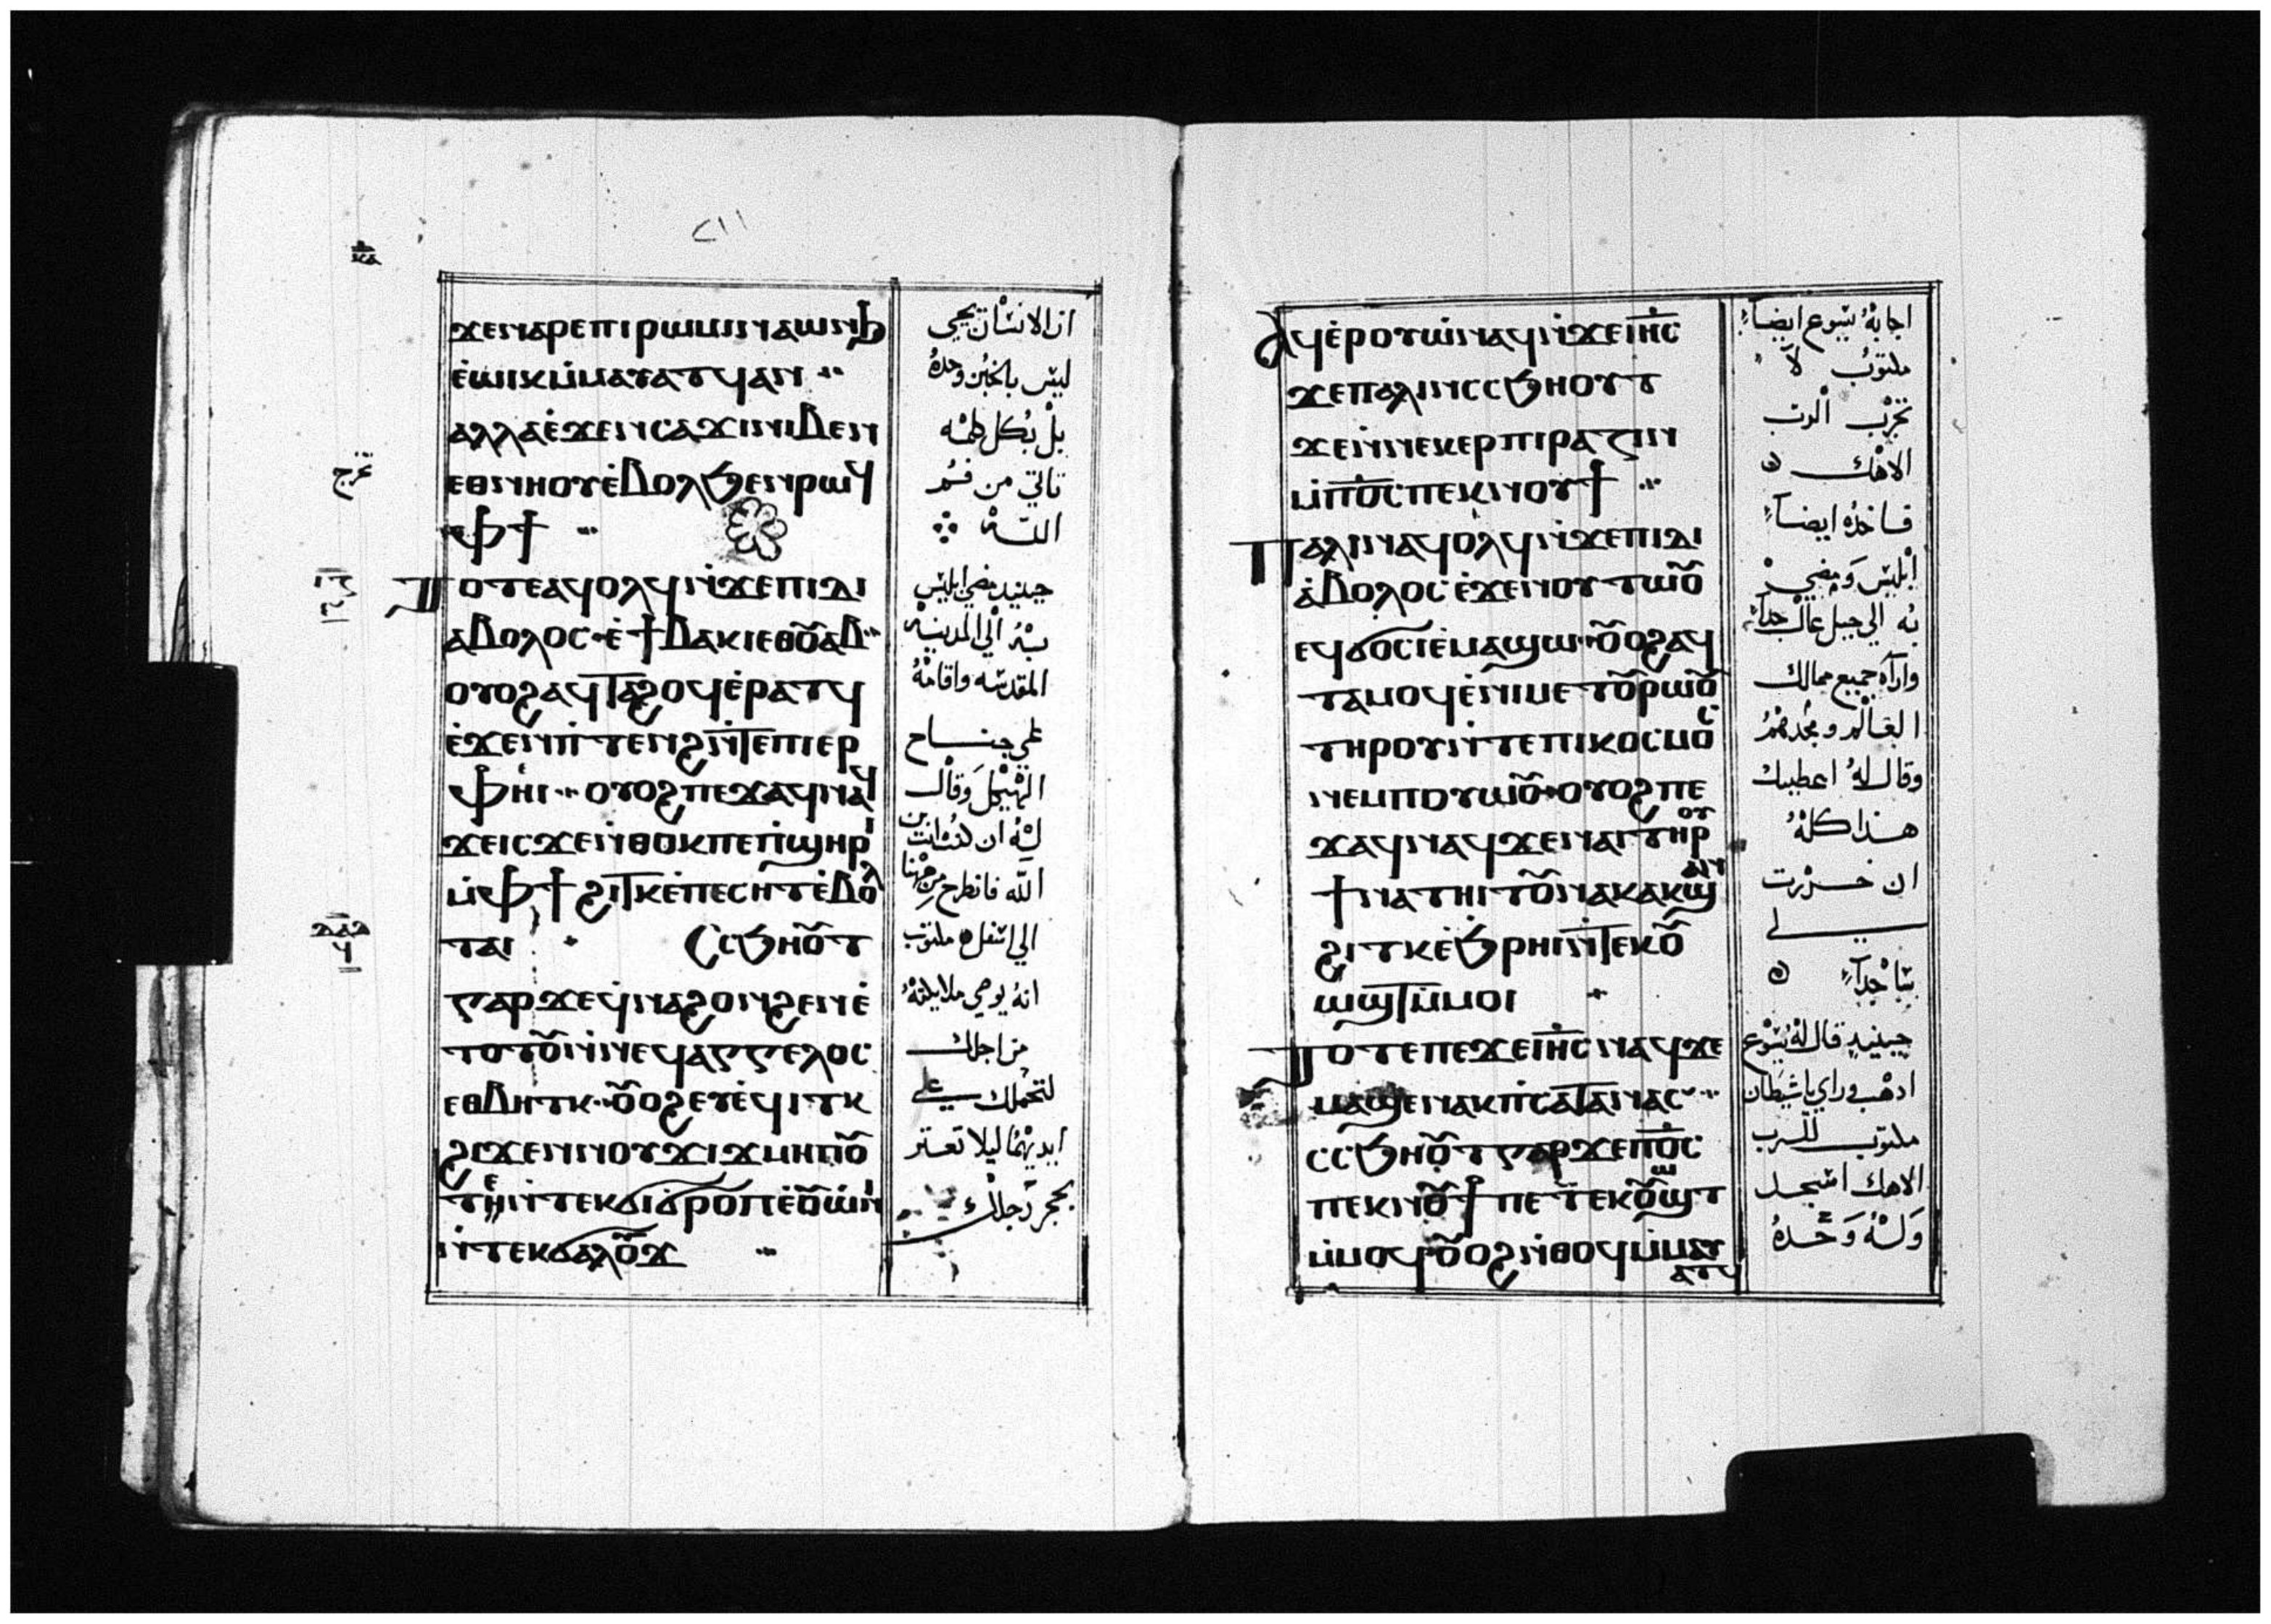 ϫⲉⲛⲁⲣⲉⲡⲓⲣⲱⲙⲓⲛⲁⲱⲛϧ
ⲉ̀ⲱⲓⲕⲙ̀ⲙⲁⲩⲁⲧϥⲁⲛ
ⲁⲗⲗⲁⲉ̀ϫⲉⲛⲥⲁϫⲓⲛⲓⲃⲉⲛ
ⲉⲑⲛⲏⲟⲩⲉ̀ⲃⲟⲗϧⲉⲛⲣⲱϥ
ⲙ̀ⲫϯ
ⲧⲟⲧⲉⲁϥⲟⲗϥⲛ̀ϫⲉⲡⲓⲇⲓ
ⲁⲃⲟⲗⲟⲥ ⲉ̀ϯⲃⲁⲕⲓⲉⲑⲟ̅ⲩ̅ⲁⲃ
ⲟⲩⲟϩⲁϥⲧⲁϩⲟϥⲉ̀ⲣⲁⲧϥ
ⲉ̀ϫⲉⲛⲡ̀ⲧⲉⲛϩⲛ̀ⲧⲉⲡⲓⲉⲣ
ⲫⲏⲓ ⲟⲩⲟϩⲡⲉϫⲁϥⲛⲁϥ
ϫⲉⲓⲥϫⲉⲛ̀ⲑⲟⲕⲡⲉⲡ̀ϣⲏⲣⲓ
ⲙ̀ⲫϯϩⲓⲧⲕⲉ̀ⲡⲉⲥⲏⲧⲉ̀ⲃⲟⲗ
ⲧⲁⲓ ⲥⲥϧⲏⲟ̅ⲩ̅ⲧ
ⲅⲁⲣϫⲉϥ̀ⲛⲁϩⲟⲛϩⲉⲛⲉ̀
ⲧⲟⲧⲟ̅ⲩ̅ⲛ̀ⲛⲉϥⲁⲅⲅⲉⲗⲟⲥ
ⲉⲑⲃⲏⲧⲕ ⲟ̅ⲩ̅ⲟϩⲉⲩⲉ̀ϥⲓⲧⲕ
ϩⲓϫⲉⲛⲛⲟⲩϫⲓϫⲙⲏⲡⲟ̅ⲩ̅
ⲧⲉ
ⲛ̀ⲧⲉⲕϭⲁⲗⲟ̅ⲩ̅ϫ
ان الانسان يحيى
ليس بالخبز وحده
بل بكل كلمه
تاتي من فم
الله
حينيد مضي ابليس
به الي المدينه
المقدسه واقامه
علي جناح
الهيكل وقال
له ان كنت انت بن
الله فانطرح من ههنا
الي اسفل مكتوب
انه يوصي ملايكته
من اجلك
لتحملك علي
ايديهما ليلا تعتر
بحجر رجلك
ⲁϥⲉ̀ⲣⲟⲩⲱ̀ⲛⲁϥⲛ̀ϫⲉⲓⲏⲥ
ϫⲉⲡⲁⲗⲓⲛⲥⲥϧⲏⲟⲩⲧ
ϫⲉⲛ̀ⲛⲉⲕⲉⲣⲡⲓⲣⲁⲍⲓⲛ
ⲙ̀ⲡⲟⲥⲡⲉⲕⲛⲟⲩϯ
ⲡⲁⲗⲓⲛⲁϥⲟⲗϥⲛ̀ϫⲉⲡⲓⲇⲓ
ⲁ̀ⲃⲟⲗⲟⲥ ⲉ̀ϫⲉⲛⲟⲩⲧⲱⲟ̅ⲩ̅
ⲉϥϭⲟⲥⲓⲉ̀ⲙⲁϣⲱ ⲟ̅ⲩ̅ⲟϩⲁϥ
ⲧⲁⲙⲟϥⲉ̀ⲛⲓⲙⲉⲧⲟ̅ⲩ̅ⲣⲱⲟ̅ⲩ̅
ⲧⲏⲣⲟⲩⲛ̀ⲧⲉⲡⲓⲕⲟⲥⲙⲟⲥ
ⲛⲉⲙⲡⲟⲩⲱ̀ⲟ̅ⲩ̅ ⲟⲩⲟϩⲡⲉ
ϫⲁϥⲛⲁϥϫⲉⲛⲁⲓⲧⲏⲣⲟⲩ
ϯⲛⲁⲧⲏⲓⲧⲟ̅ⲩ̅ⲛⲁⲕⲁⲕϣⲁⲛ
ϩⲓⲧⲕⲉ̀ϧⲣⲏⲓⲛ̀ⲧⲉⲕⲟ̅ⲩ̅
ⲱϣⲧⲙ̀ⲙⲟⲓ
ⲧⲟⲧⲉⲡⲉϫⲉⲓⲏⲥⲛⲁϥϫⲉ
ⲙⲁϣⲉⲛⲁⲕⲡ̀ⲥⲁⲧⲁⲛⲁⲥ
ⲥⲥϧⲏⲟ̅ⲩ̅ⲧⲅⲁⲣϫⲉⲡⲟⲥ
ⲡⲉⲕⲛⲟ̅ⲩ̅ϯⲡⲉⲧⲉⲕⲟ̅ⲩ̅ⲱϣⲧ
ⲙ̀ⲙⲟϥⲟ̅ⲩ̅ⲟϩⲛ̀ⲑⲟϥⲙ̀ⲙⲁⲩ
ⲁⲧϥ
اجابه يسوع ايضاً
مكتوب لا
تجرب الرب
الاهك
فاخذه ايضاً
ابليس ومضي
به الي جبل عال جداً
وآراه جميع ممالك
العالم ومجدهم
وقال له اعطيك
هذا كله
ان خررت
لي
ساجداً
حينيد قال له يسوع
ادهب وراي يا شيطان
مكتوب للرب
الاهك اسجد
وله وحده